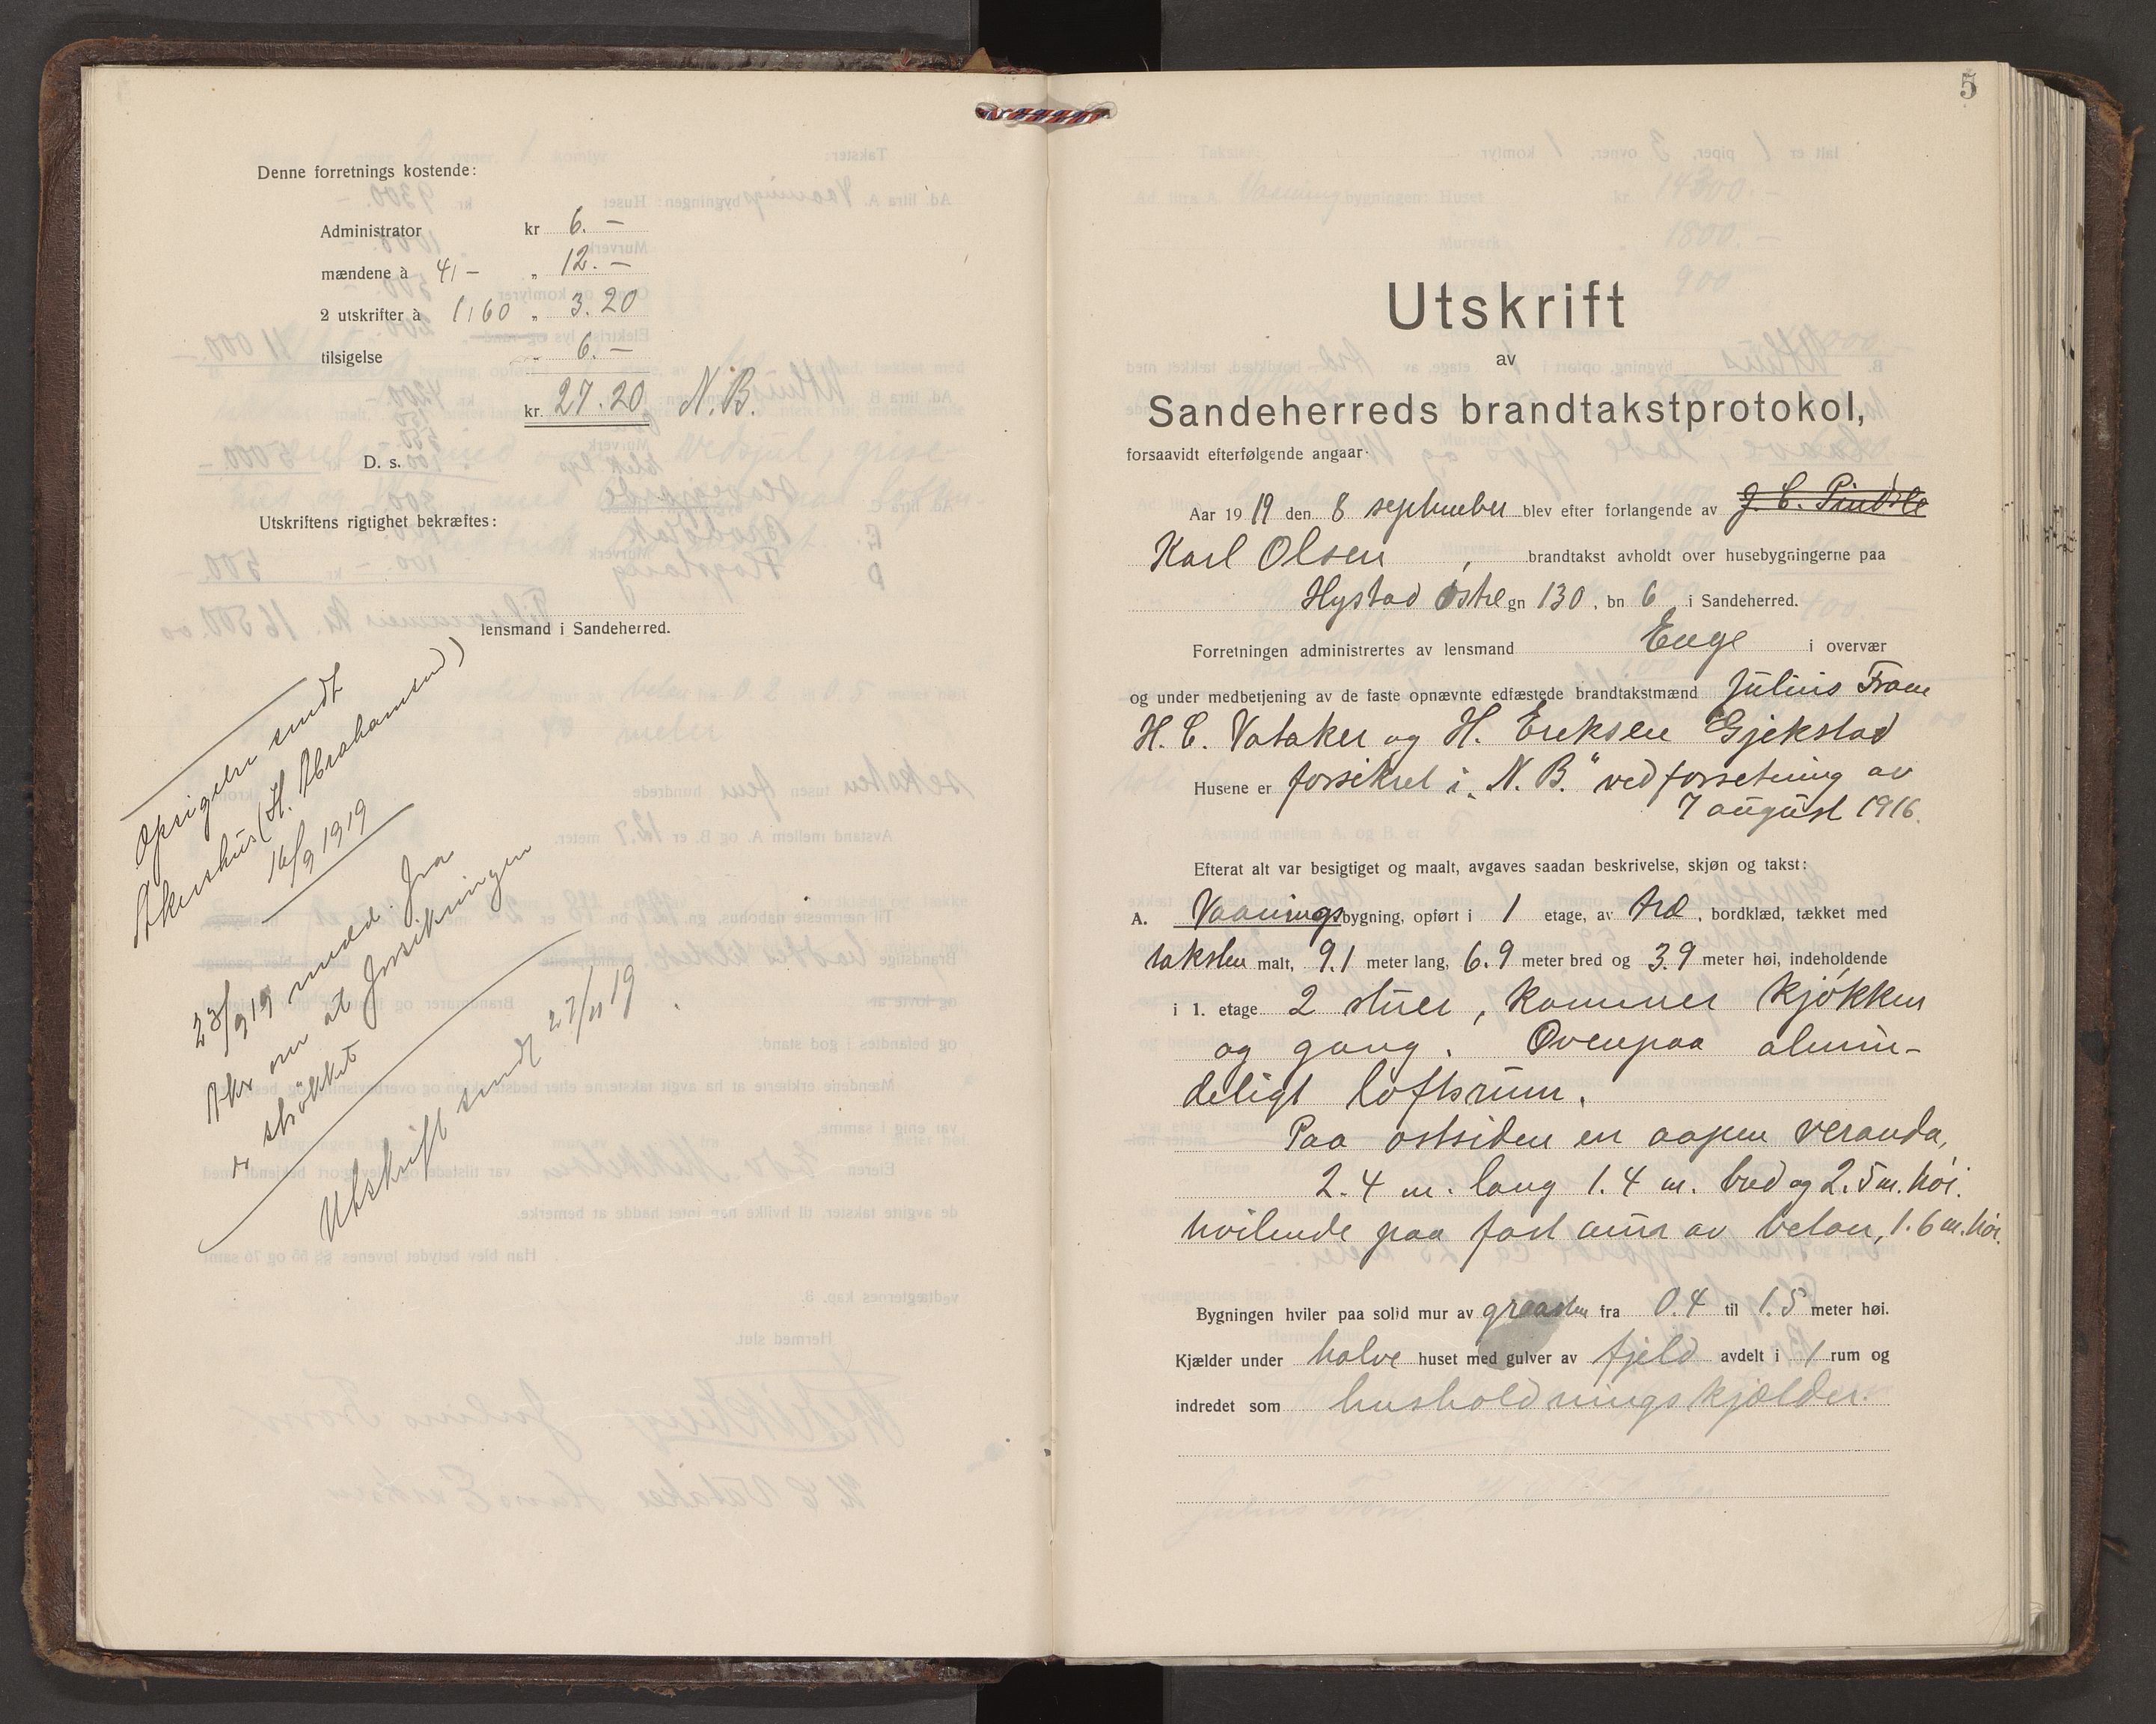 Denne forretnings kostende:
Administrator kr 6. —
mændene à 4,— „ 12. —
2 utskrifter à 1,60 „ 3.20
tilsigelse „ 6. —
kr. 27.20 N.B.
D. s.
Utskriftens rigtighet bekræftes:
lensmand i Sandeherred.
Opsigelse sendt
Akershus (H. Abrahamsen)
16/9 1919
23/9 19 medd. fra
Aker om at forsikringen
er strøket
Utskrift sendt 27/11 19.
5
Utskrift
av
Sandeherreds brandtakstprotokol,
forsaavidt efterfølgende angaar.
Aar 1919 den 8 september blev efter forlangende av J. C. Pindsle
Karl Olsen, brandtakst avholdt over husebygningerne paa
Hystad østre gn 130, bn 6 i Sandeherred.
Forretningen administrertes av lensmand Enge i overvær
og under medbetjening av de faste opnævnte edfæstede brandtakstmænd Julius Fram
H. C. Vataker og H. Eriksen Gjekstad
Husene er forsikret i „N. B." ved forsetning av
7 august 1916.
Efterat alt var besigtiget og maalt, avgaves saadan beskrivelse, skjøn og takst:
A. Vaaningsbygning, opført i 1 etage, av træ, bordklæd, tækket med
taksten malt, 9.1 meter lang, 6.9 meter bred og 3.9 meter høi, indeholdende
i 1. etage 2 stuer, kammer kjøkken
og gang. Ovenpaa almin-
deligt loftsrum.
Paa østsiden en aapen veranda,
2.4 m. lang 1.4 m. bred og 2.5 m. høi.
hvilende paa fast mur av beton, 1.6 m. høi.
Bygningen hviler paa solid mur av graasten fra 0.4 til 1.5 meter høi.
Kjælder under halve huset med gulver av fjeld avdelt i 1 rum og
indredet som husholdningskjælder.